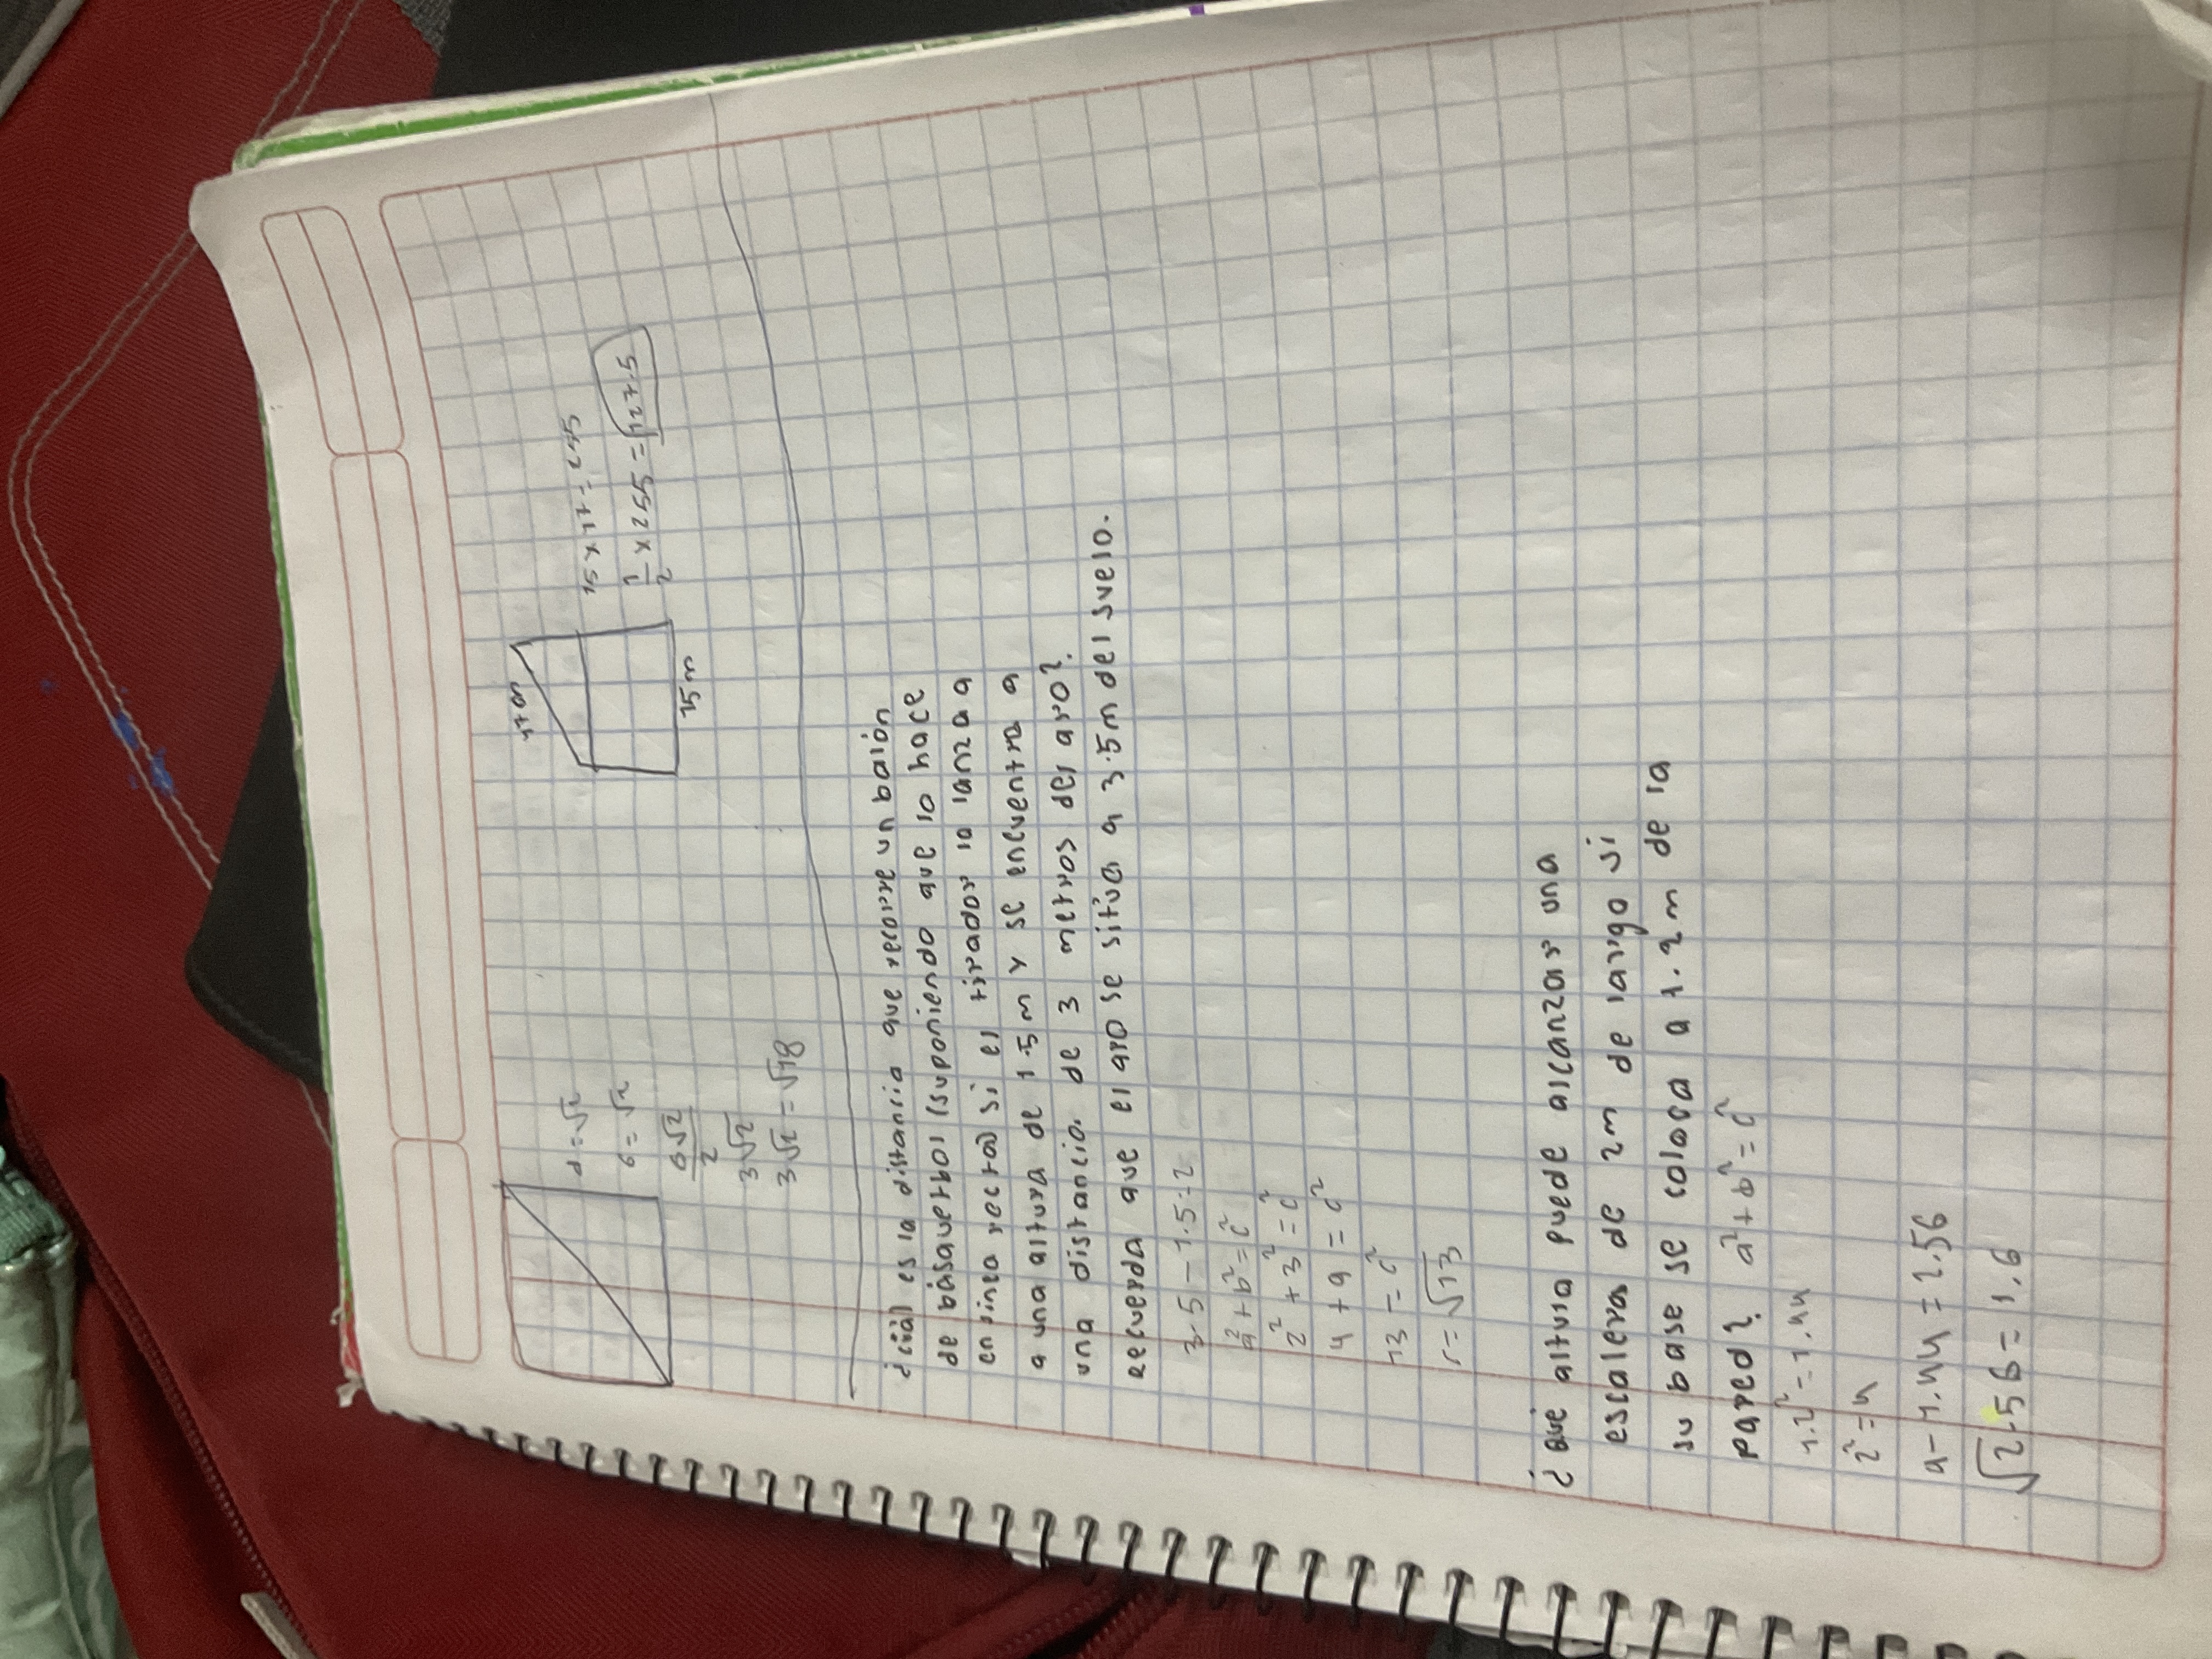 d=√2
6=√2
6√2
2
3√2
3√2=√18
17cm
15m
15x17=255
1/2 x255=127.5
¿cuál es la distancia que recorre un balón
de básquetbol (suponiendo que lo hace
en línea recta) si el tirador la lanza a
a una altura de 1.5m y se encuentra a
una distancia de 3 metros del aro?
Recuerda que el aro se sitúa a 3.5m del suelo.
3.5-1.5=2
a²+b²=c²
2²+3²=c²
4+9=c²
13=c²
c=√13
¿Qué altura puede alcanzar una
escalera de 2m de largo si
su base se coloca a 1.2m de la
pared? a²+b²=c²
1.2²=1.44
2²=4
4-1.44=2.56
√2.56=1.6